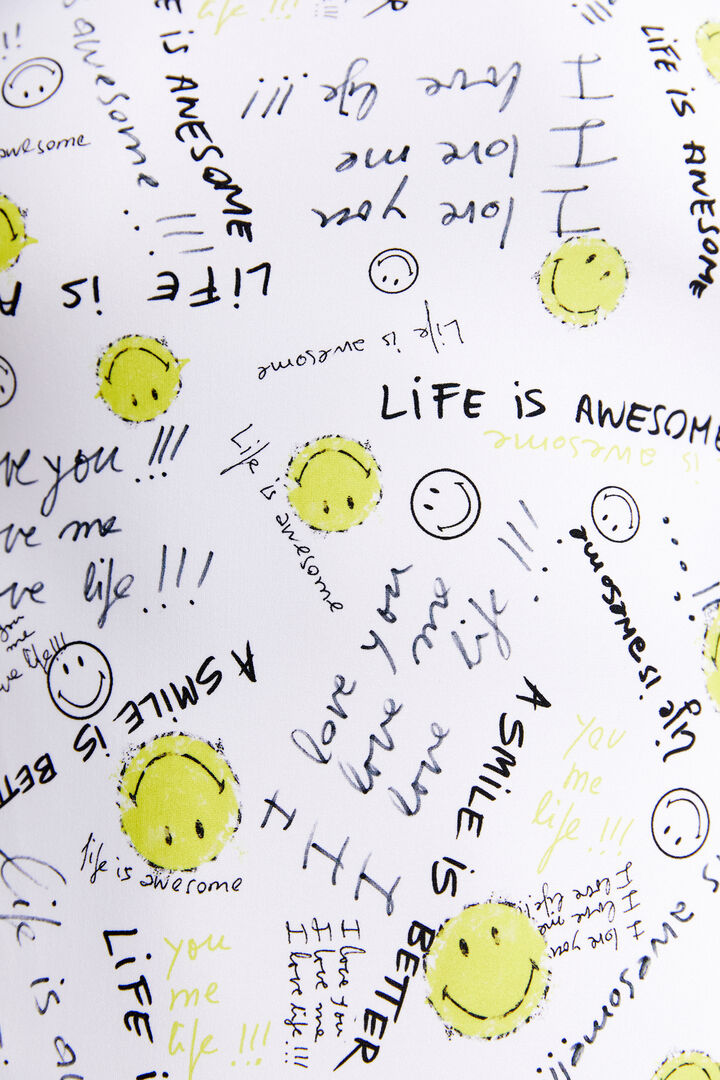 life !!!
LIFE IS ANESOME
awesome !!!
awesome
I love life !!!
I love me
I love you
LIFE IS ANESOME
LIFE IS A
Life is awesome
LIFE IS AWESOME
is awesome
ve you !!!
ve me
ve life !!!
Life is awesome
I love you
I love me
I love life !!!
life is awesome
you
me
ve life!!!
A SMILE IS BETTER
A SMILE IS BETTER
you
me
life !!!
life is awesome
I love you
I love me
I love life!!
Life is a
LIFE i
you
me
life !!!
I love you
I love me
I love life!!!
is awesome!!!